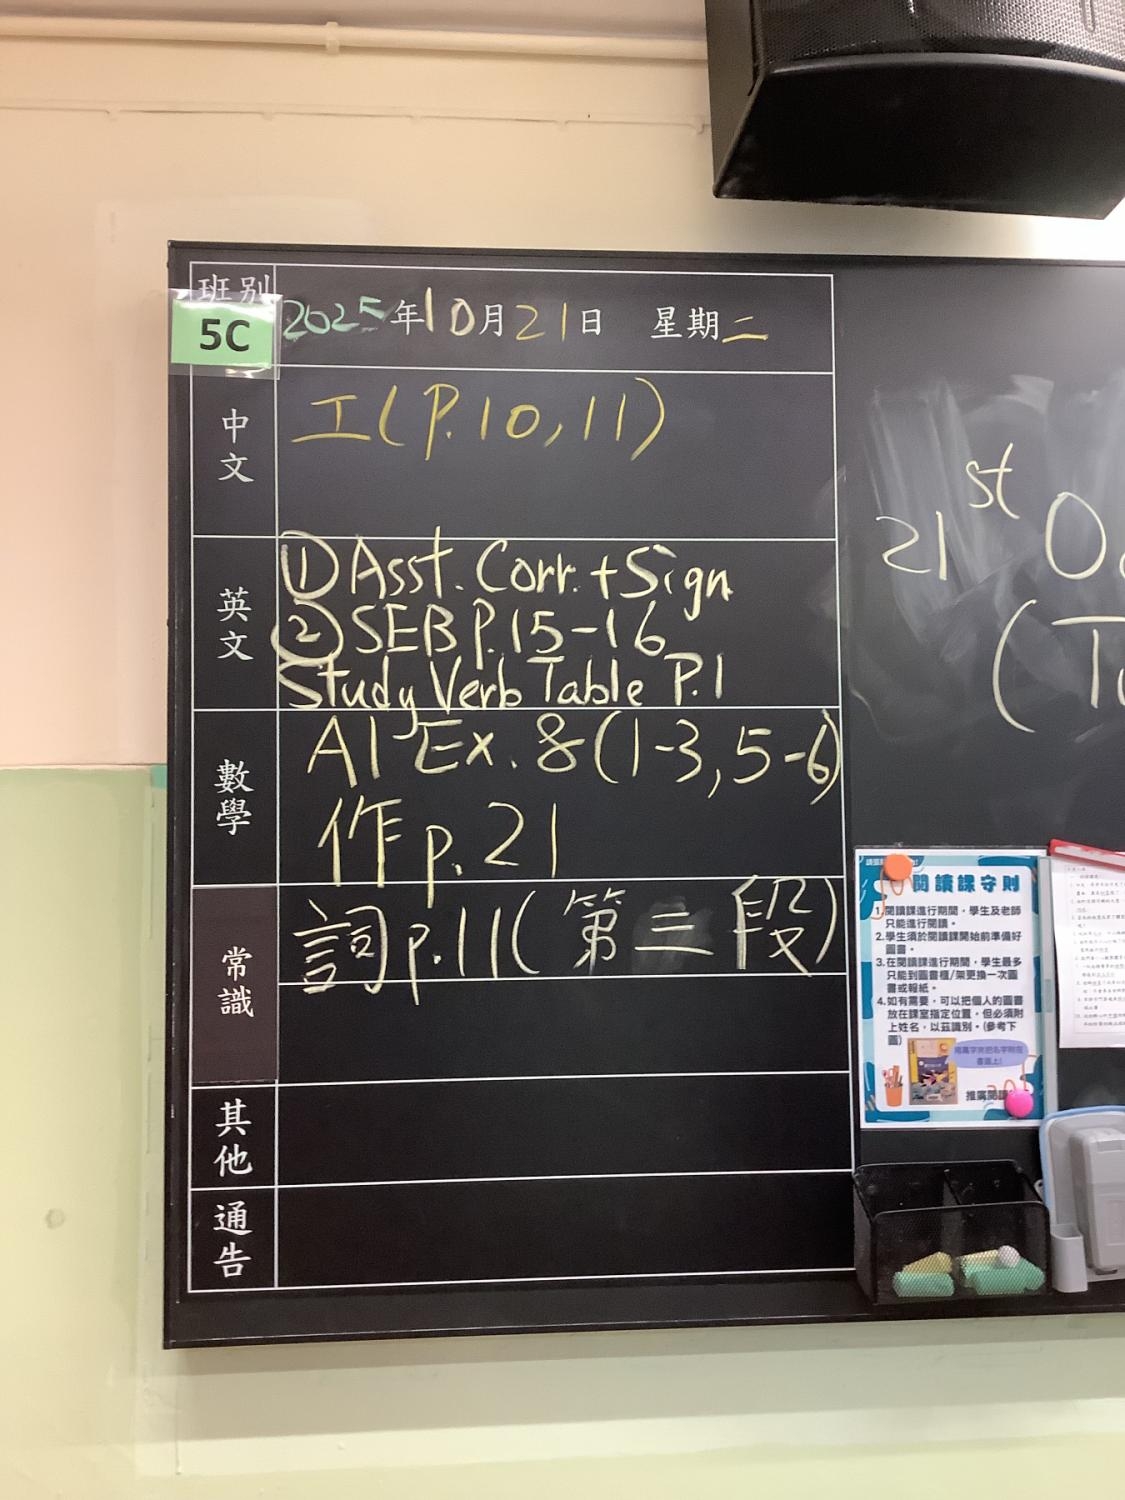 班別
5C
2025年10月21日 星期二
中文
工(P.10,11)
英文
①Asst. Corr. + Sign
②SEB P.15-16
Study Verb Table P.1
數學
A1 Ex. 8(1-3,5-6)
作p.21
常識
詞p.11(第三段)
其他
通告
21st
閱讀課守則
1.閱讀課進行期間，學生及老師
只能進行閱讀。
2.學生須於閱讀課開始前準備好
圖書。
3.在閱讀課進行期間，學生最多
只能到圖書櫃/架更換一次圖
書或報紙。
4.如有需要，可以把個人的圖書
放在課室指定位置，但必須附
上姓名，以茲識別。(參考下
圖)